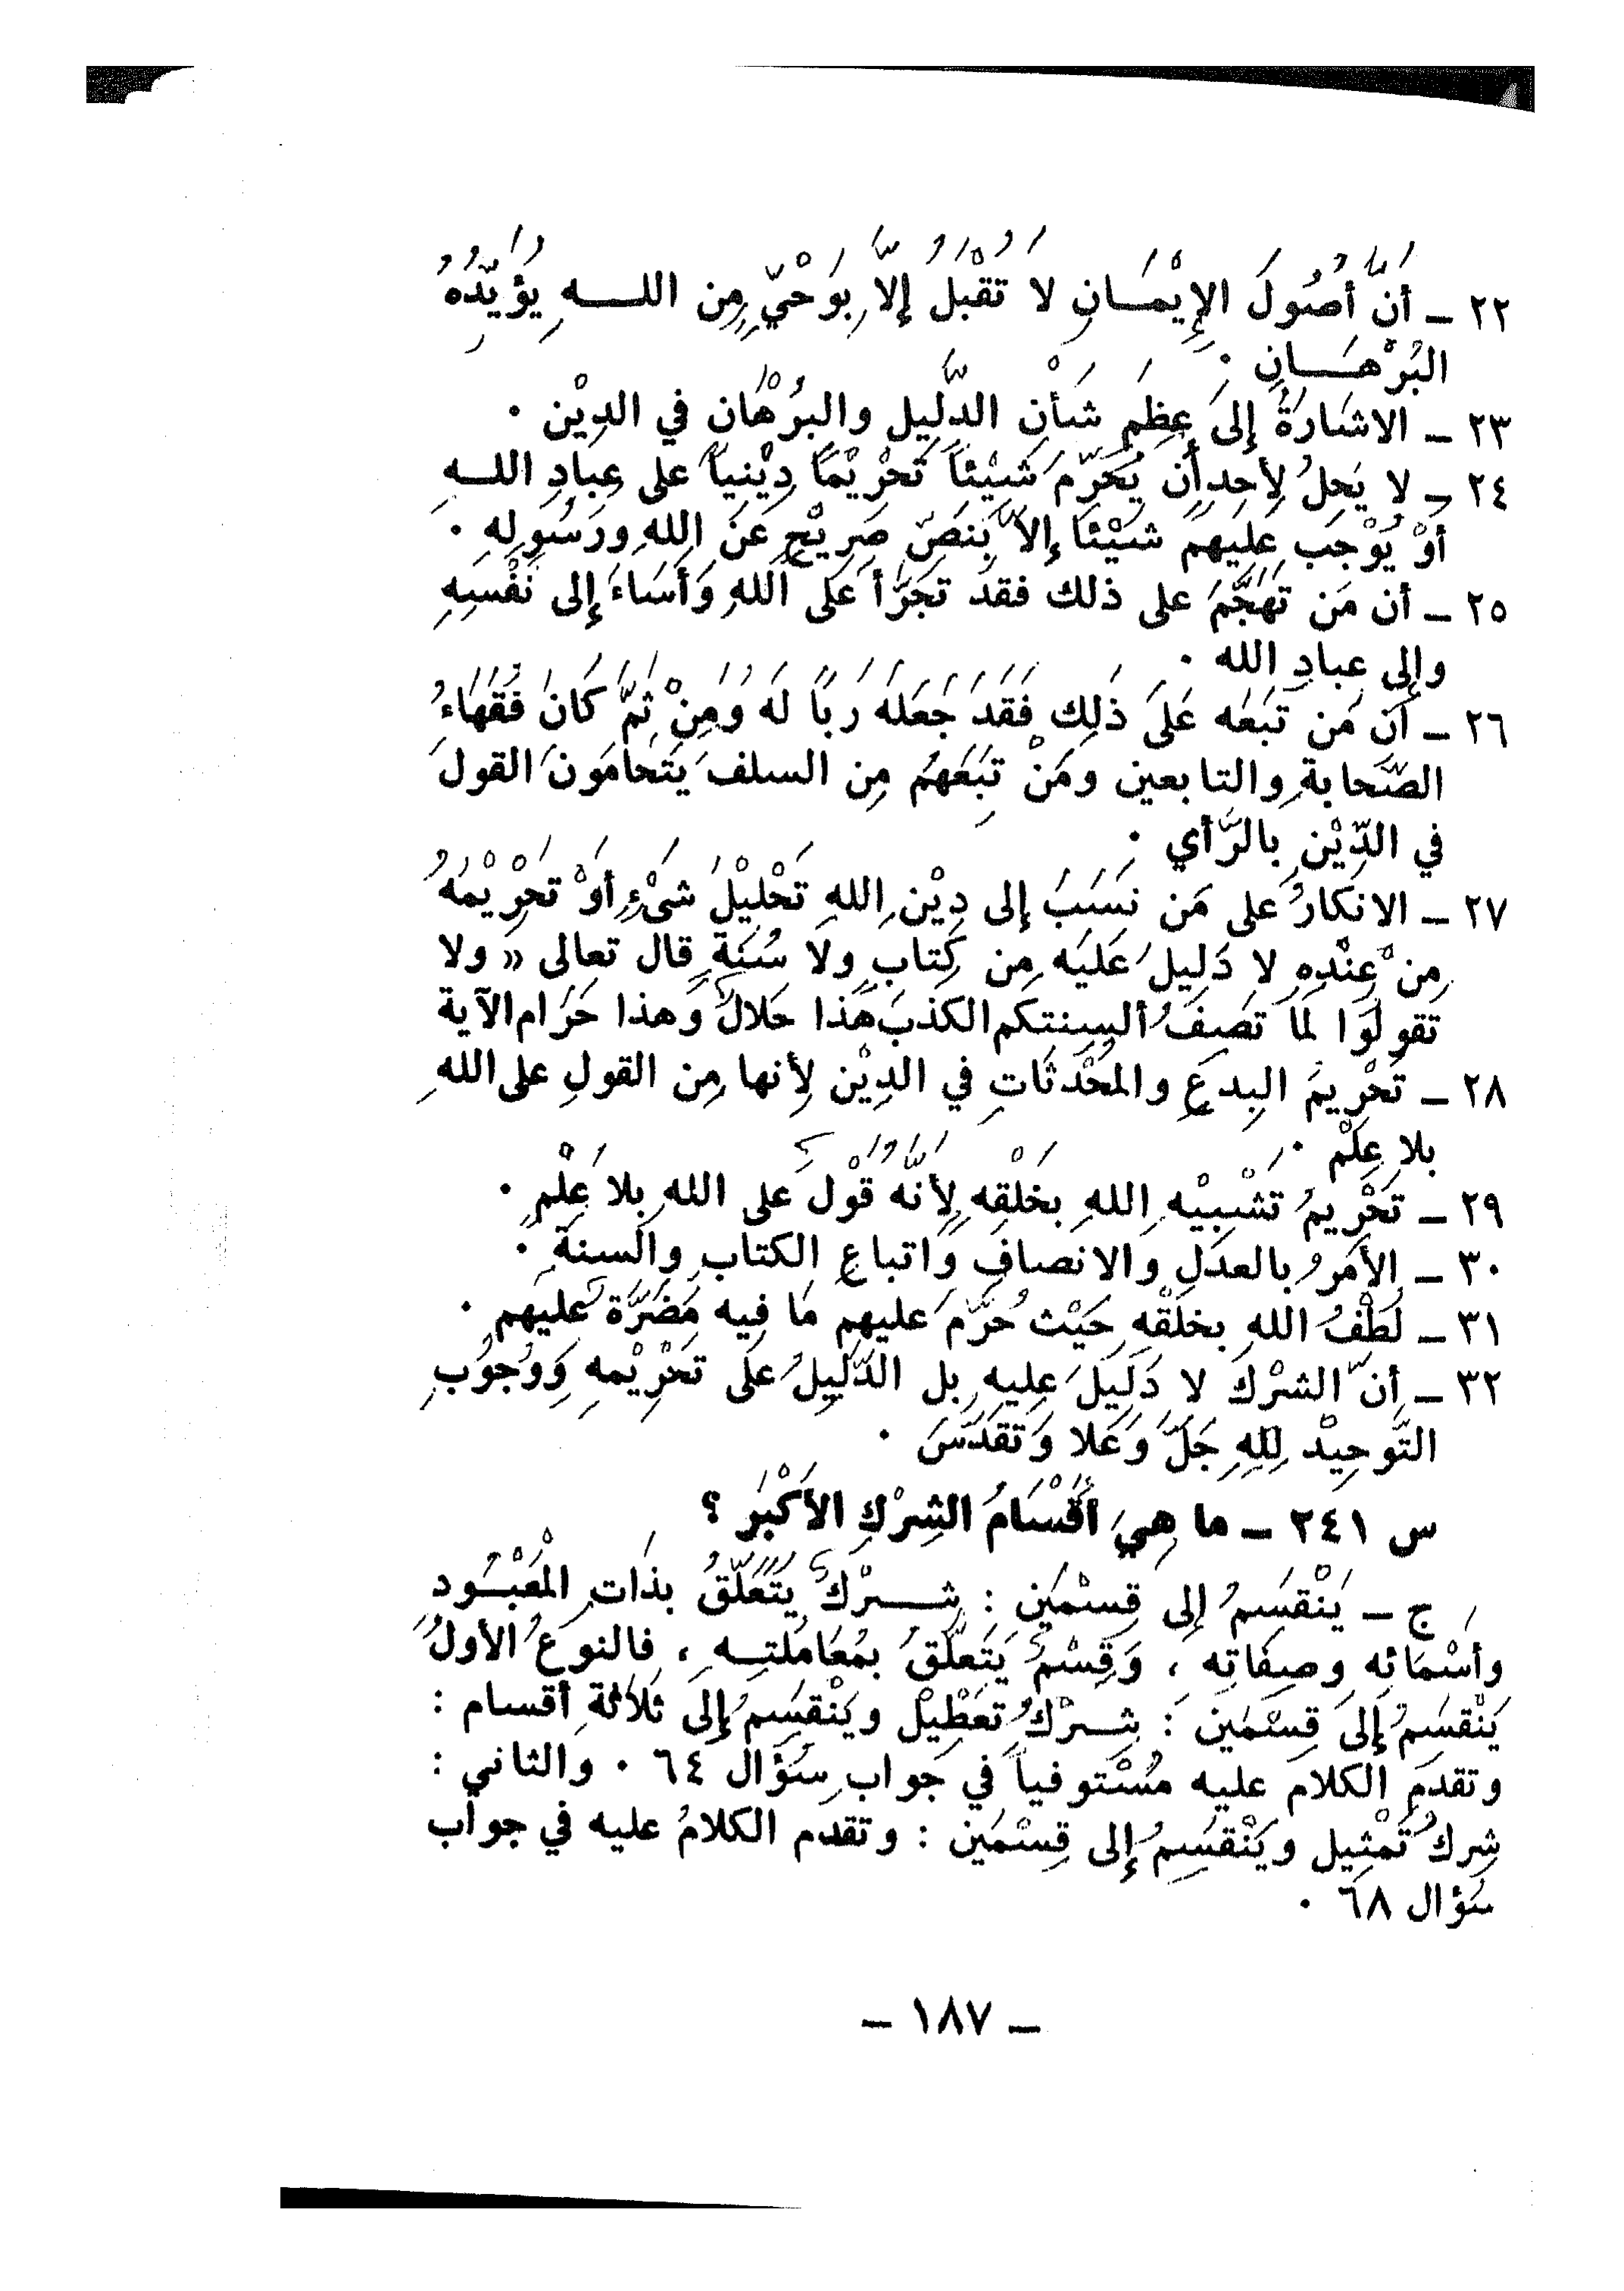 ٢٢ ــ أَنَّ أُصُولَ الإِيْمَـانِ لاَ تُقْبَلُ إِلاَّ بِوَحْيٍّ مِن اللـــهِ يُؤَيِّدُهُ
البُرْهَـــانِ ٠
٢٣ ــ الاشَارَةُ إِلىَ عِظَمِ شَأْنِ الدَّلِيلِ والبُرْهَانِ في الدِيْن ٠
٢٤ ــ لا يَحِلُ لِأَحِدٍ أَن يُحَرِّمَ شَيْئاً تَحْرِيْمًا دِيْنِياً على عِبادِ اللــهِ
أَوْ يُوْجِبَ عَلِيهِمْ شَيْئًا إِلاَّ بِنَصٍّ صَرِيْحٍ عَنَ اللهِ ورَسُولِهِ ٠
٢٥ ــ أن مَن تَهَجَّمَ على ذلك فقدَ تَجَرَّأَ عَلَى اللهِ وَأَسَاءَ إِلى نَفْسِهِ
وإِلى عبادِ الله ٠
٢٦ ــ أَن مَن تَبَعَه عَلىَ ذَلِك فَقَدَ جَعَلَهُ رَباً لَهُ وَمِنْ ثَمَّ كَانَ فُقَهَاءُ
الصَّحابةِ والتابعين ومَنْ تَبَعَهُم مِن السلف يَتَحامَونَ القولَ
في الدِّيْنِ بِالرَّأي ٠
٢٧ ــ الانكارُ على مَن نَسَبَ إلى دِيْنِ اللهِ تَحْلِيْلَ شَىْءٍ أَوْ تَحْرِيْمَهُ
مِن عِنْدِهِ لا دَلِيلَ عَلَيَه مِن كِتابٍ ولا سُنَةٍ قال تعالى « ولا
تقولَوا لِمَا تَصِفُ ألسِنتكم الكذبَ هَذا حَلالٌ وَهذا حَرَام الآية
٢٨ ــ تَحْرِيمَ البِدعِ والمُحْدَثَاتِ في الدِيْن لِأَنها مِن القولِ على اللهِ
بِلا عِلْم ٠
٢٩ ــ تَحْرِيمُ تَشْبِيْهِ اللهِ بخَلْقِهِ لِأَنَّهُ قَوْلٌ على اللهِ بِلا عِلْمٍ ٠
٣٠ ــ الأَمَرُ بالعدَلِ والانصافِ وَاتباعِ الكتابِ والسنةِ ٠
٣١ ــ لُطْفُ اللهِ بخلْقهِ حَيْث حُرَّمَ عليهم مَا فِيه مَضَرَّةٌ عَليهم ٠
٣٢ ــ أنّ الشرْكَ لا دَلِيَلَ عليهِ بل الدَّلِيلُ علَى تَحْرِيْمهِ وَوُجوُبِ
التَّوحِيْد لِلهِ جَلَّ وَعَلا وَتقَدَسَ ٠
س ٢٤١ ــ ما هِيَ أَقْسَامُ الشِرْكِ الأكْبَر ؟
ج ــ يَنْقَسِمُ إِلى قِسْمَيَنِ : شِـــرْكٌ يَتَعَلَّقُ بذَاتِ المْعَبْـُود
وأَسْمَائه وصِفَاتِه ، وَقِسْمٌ يَتَعَلَّقُ بمُعَامَلَتِــهِ ، فالنوعُ الأولُ
يَنْقسَِمُ إِلىَ قِسْمَين : شِـــرْكُ تَعَطْيِلْ ويَنْقسَِمُ إِلىَ ثَلاَثةِ أقسام :
وتقدمَ الكلام عليه مسُْتوفياً في جَوابِ سَؤُال ٦٤ ٠ والثاني :
شِركُ تَمْثِيل ويَنْقَسِمُ إلى قِسْمَين : وتقدم الكلامُ عليه في جوابِ
سَؤُال ٦٨ ٠
ــ ١٨٧ ــ